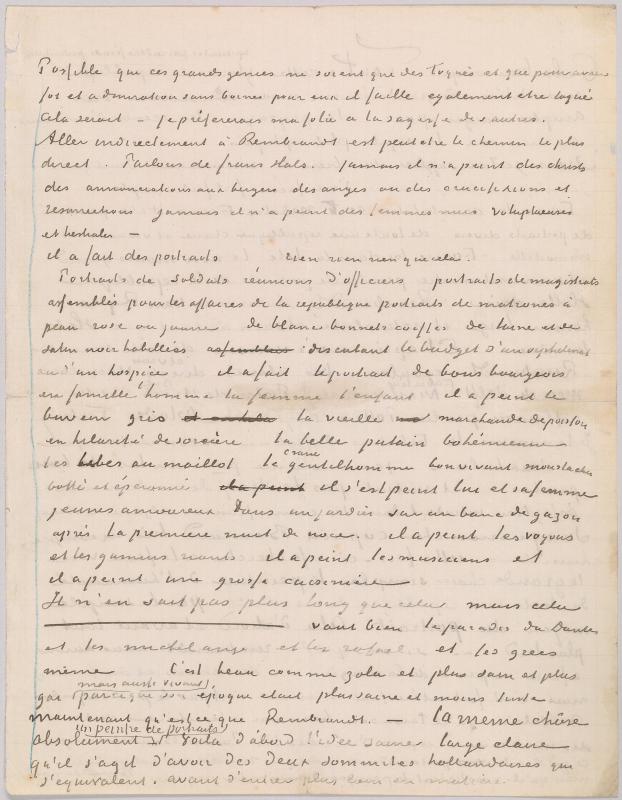 Possible que ces grands genies ne soient que des toqués et que pour avoir
foi et admiration sans bornes pour eux il faille egalement etre toqué
cela serait – je préfererais ma folie a la sagesse des autres.
Aller indirectement à Rembrandt est peut etre le chemin le plus
direct. Parlons de frans Hals. Jamais il n'a peint des christs
des annonciations aux bergers des anges ou des crucifixions et
resurrections jamais il n'a peint des femmes nues voluptueuses
et bestiales –
il a fait des portraits rien rien rien que cela.
Portraits de soldats réunions d'officiers portraits de magistrats
assemblés pour les affaires de la republique portraits de matrones à
peau rose ou jaune de blancs bonnets coiffés de laine et de
satin noir habillées assemblées discutant le budget d'un orphelinat
ou d'un hospice il a fait le portrait de bons bourgeois
en famille l'homme la femme l'enfant il a peint le
buveur gris la vieille marchande de poisson
en hilarité de sorcière la belle putain bohémienne
les bebes au maillot le crane gentilhomme bon vivant moustachu
botté et éperonné il a peint il s'est peint lui et sa femme
jeunes amoureux dans un jardin sur un banc de gazon
après la première nuit de noce. il a peint les voyous
et les gamins riants il a peint les musiciens et
il a peint une grosse cuisinière
Il n'en sait pas plus long que cela mais cela
vaut bien le paradis du Dante
et les michel ange et les rafael et les grecs
même C'est beau comme zola et plus sain et plus
gai mais aussi vivant parceque son époque etait plus saine et moins triste
maintenant qu'est ce que Rembrandt. – la meme chôse
absolument un peintre de portraits Voila d'abord l'idée saine large claire
qu'il s'agit d'avoir des deux sommités hollandaises qui
s'equivalent. avant d'entrer plus loin en matière.